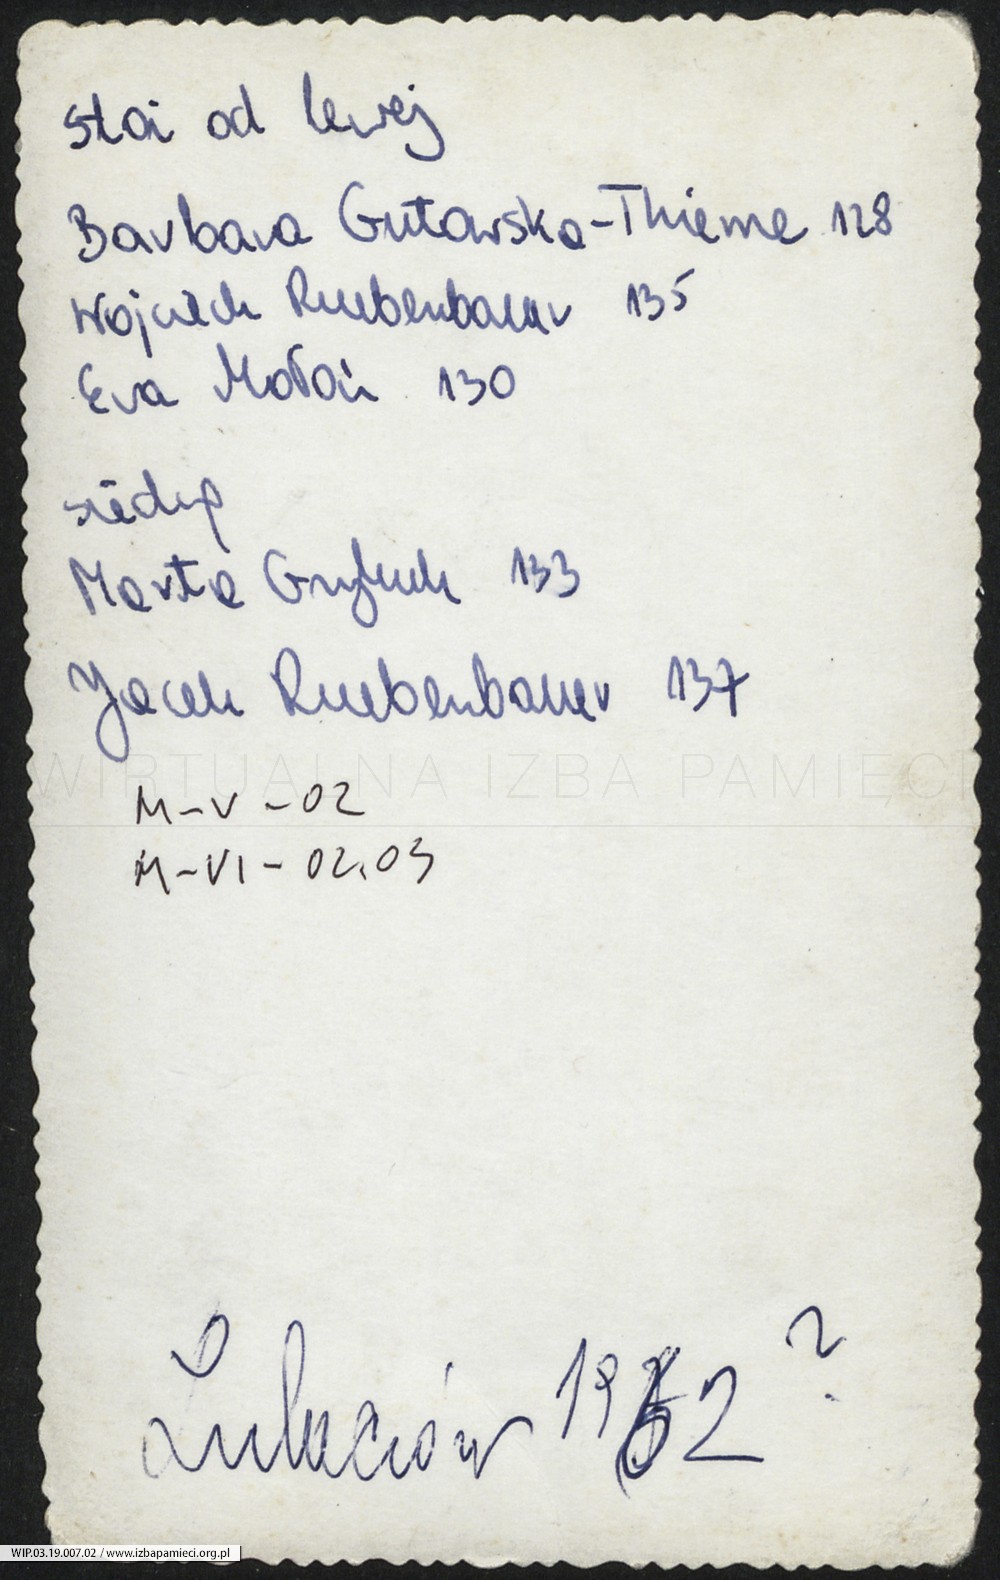 stoi od lewej
Barbara Gutowska-Thieme 128
Wojciech Ruebenbauer 135
Ewa Mołoń 130
siedzą
Marta Grybuch 133
Jacek Ruebenbauer 137
WIRTUALNA IZBA PAMIĘCI
M-V-02
M-VI-02,03
1962 ?
WIP.03.19.007.02 / www.izbapamieci.org.pl